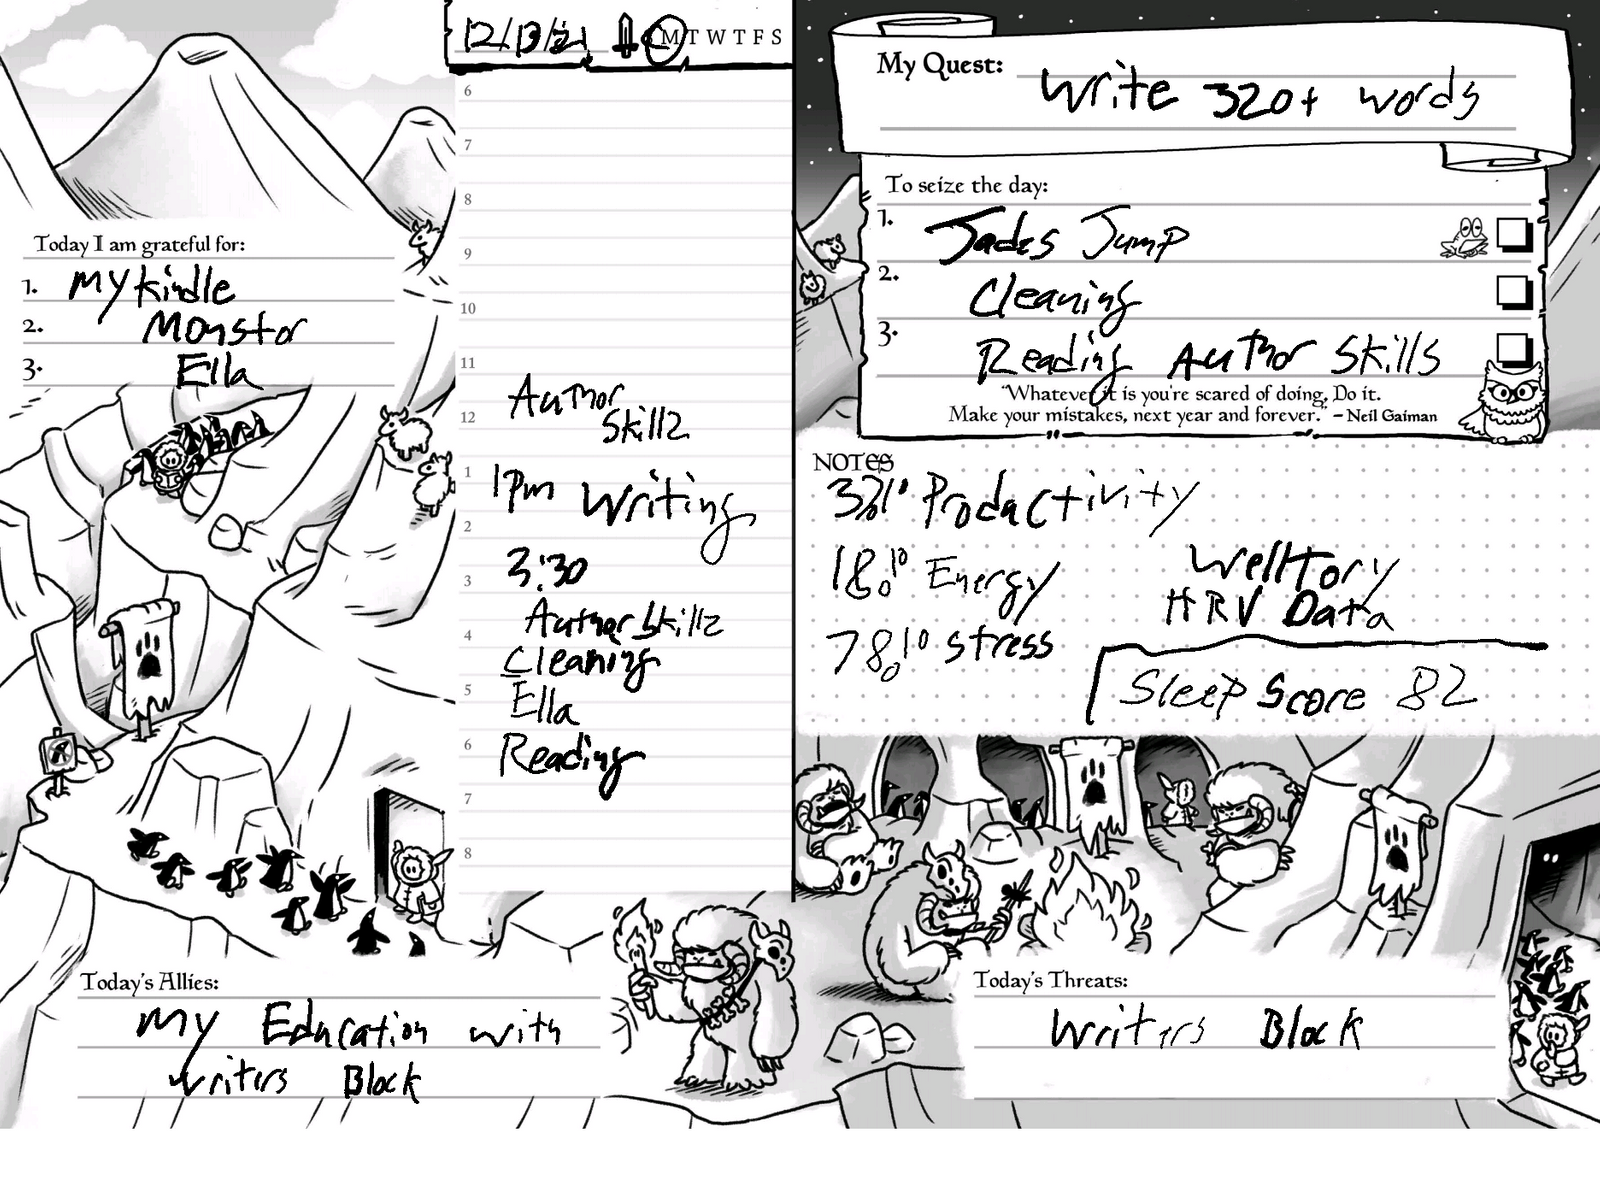 12/13/21 M T W T F S
6
7
8
9
10
11
Author
12
Skillz
1
1pm Writing
2
3:30
3
Author Skillz
4
Cleaning
5
Ella
6
Reading
7
8
Today I am grateful for:
1. My Kindle
2. Monstor
3. Ella
Today's Allies:
My Education with
writers Block
My Quest:
Write 320+ words
To seize the day:
1. Jades Jump
2. Cleaning
3. Reading Author Skills
"Whatever it is you're scared of doing, Do it.
Make your mistakes, next year and forever." – Neil Gaiman
NOTES
Productivity
18% Energy
78% Stress
Welltory
HRV Data
Sleep Score 82
Today's Threats:
Writers Block